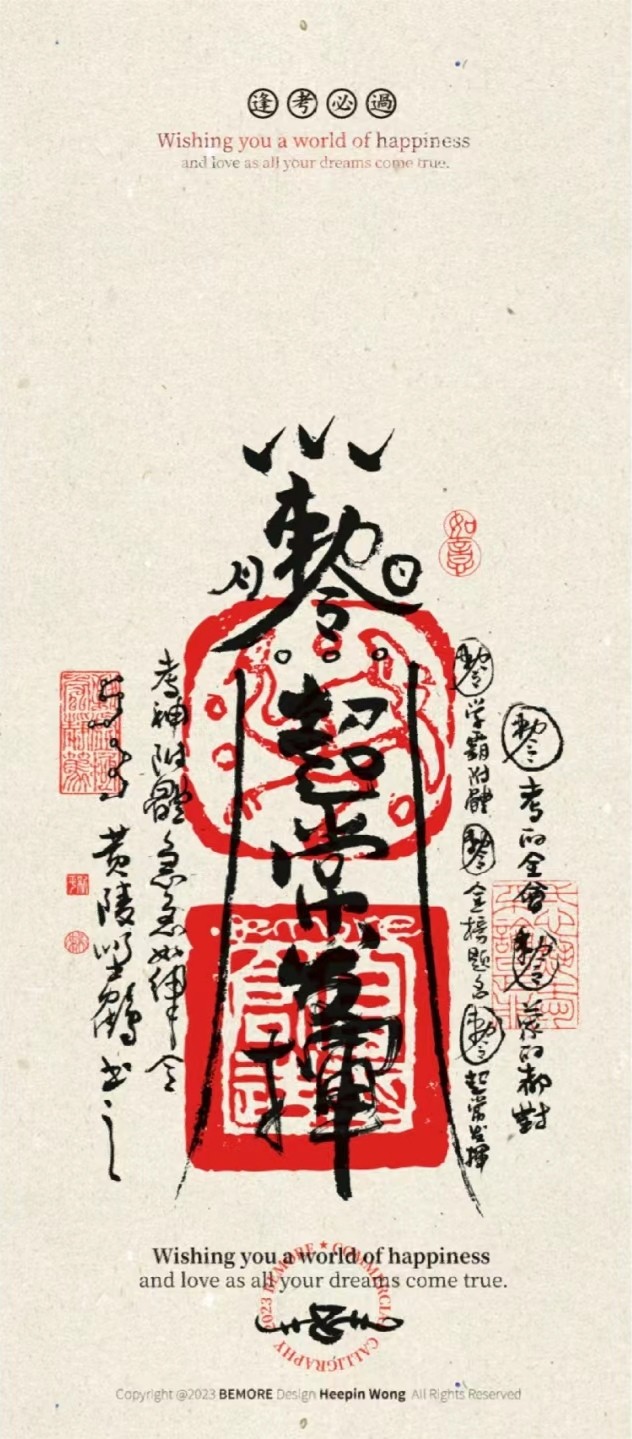 逢考必過
Wishing you a world of happiness
and love as all your dreams come true.
勅令
月
日
如意
超常發揮
勅令 考的全會 勅令 蒙的都對
勅令 学霸附體 勅令 金榜题名 勅令 超常发揮
考神附體 急急如律令
黄陵野鶴书之
Wishing you a world of happiness
and love as all your dreams come true.
2023 BEMORE ★ COMMERCIAL CALLIGRAPHY
Copyright @2023 BEMORE Design Heepin Wong All Rights Reserved